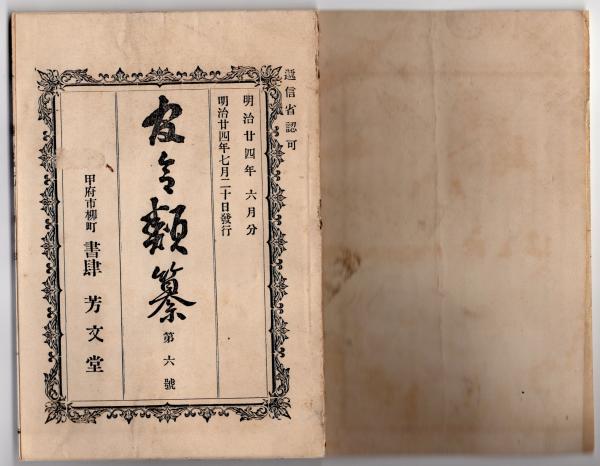 遞信省認可
明治廿四年六月分
明治廿四年七月二十日發行
官令類纂 第六號
甲府市柳町 書肆 芳文堂